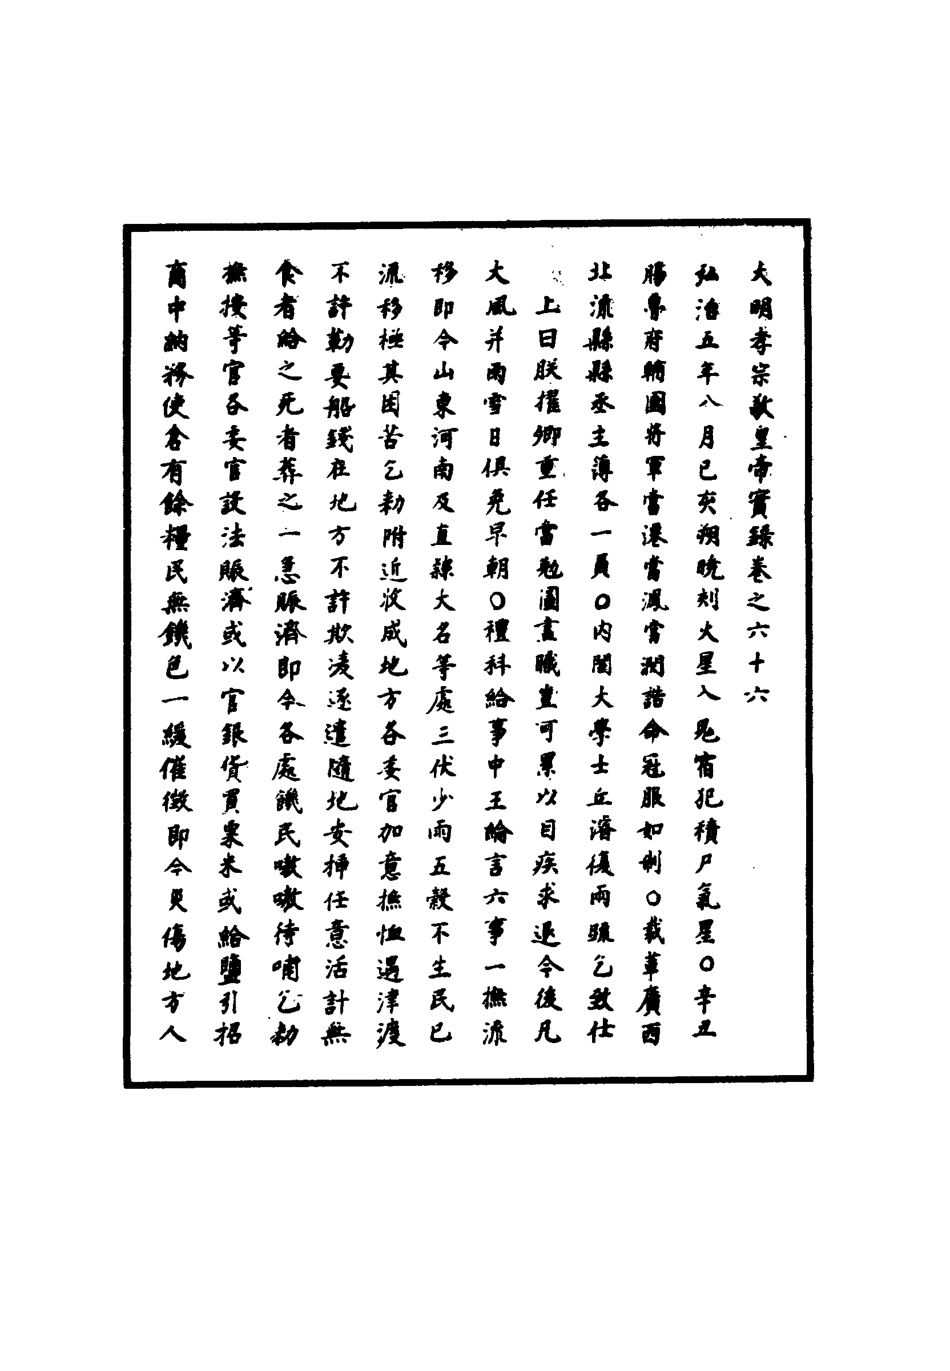 大明孝宗敬皇帝實錄卷之六十六
弘治五年八月己亥朔曉刻火星入鬼宿犯積尸氣星○辛丑
賜魯府輔國將軍當漶當渢當潤誥命冠服如制○裁革廣西
北流縣縣丞主薄各一員○內閣大學士丘濬復兩疏乞致仕
上曰朕擢卿重任當勉圖盡職豈可累以目疾求退今後凡
大風并雨雪日俱免早朝○禮科給事中王綸言六事一撫流
移即令山東河南及直隸大名等處三伏少雨五穀不生民已
流移極其困苦乞勑附近收成地方各委官加意撫恤遇津渡
不許勒要船錢在地方不許欺凌逐遣隨地安揷任意活計無
食者給之死者葬之一急賑濟即今各處饑民嗷嗷待哺乞勑
撫按等官各委官設法賑濟或以官銀貨買粟米或給鹽引招
商中納務使倉有餘糧民無饑色一緩催徵即今災傷地方人